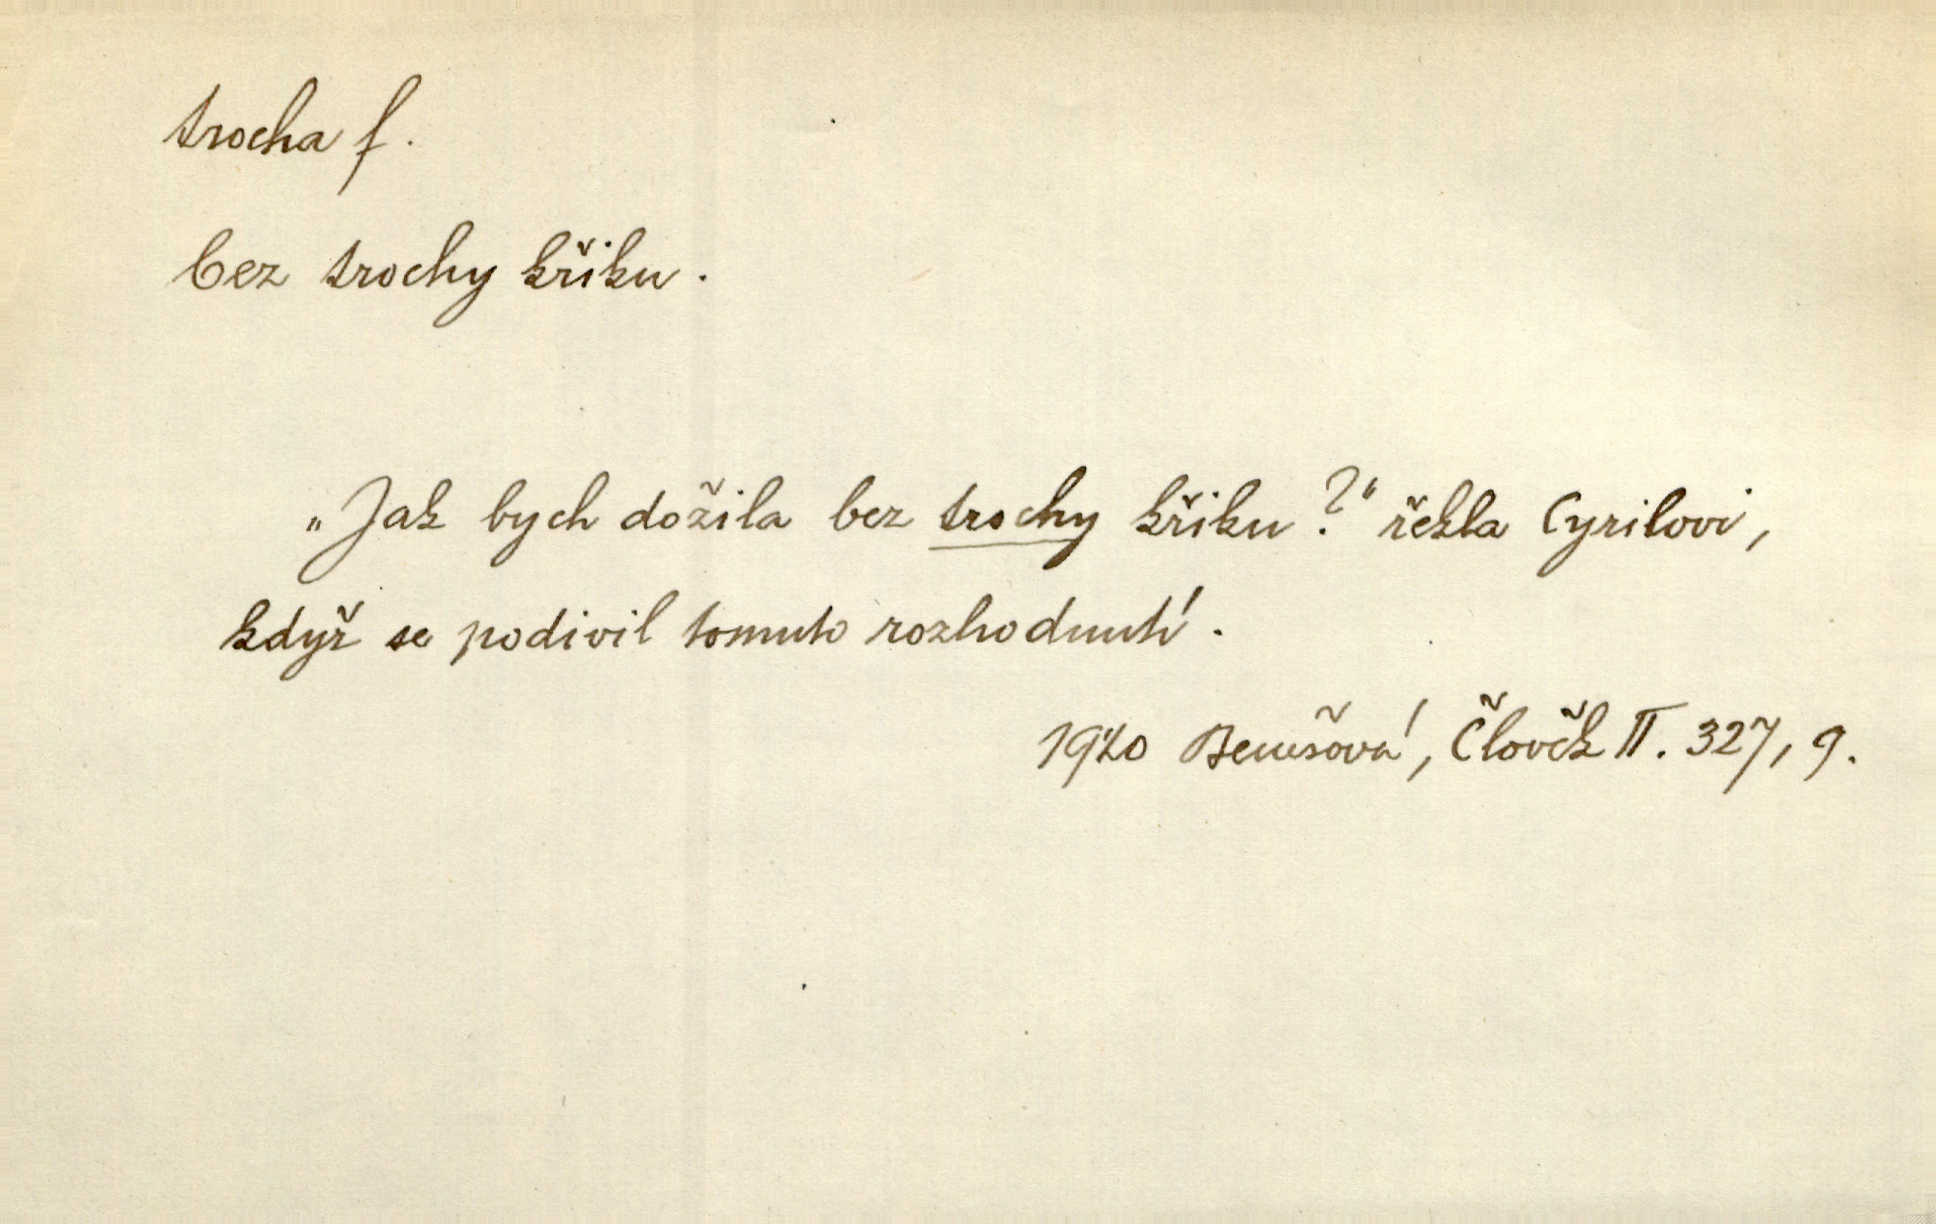 trocha f.
bez trochy křiku.
„Jak bych dožila bez trochy křiku?“ řekla Cyrilovi,
když se podivil tomuto rozhodnutí.
1920 Benešová, Člověk II. 327, 9.